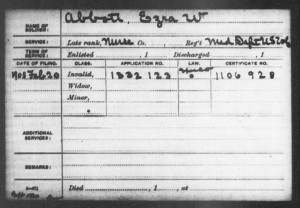 NAME OF SOLDIER: Abbott, Ezra W
SERVICE: Late rank, Nurse Co. , Reg't Med. Dept U.S. Vols
TERM OF SERVICE: Enlisted , 1 Discharged , 1
DATE OF FILING. CLASS. APPLICATION NO. LAW. CERTIFICATE NO.
Feb. 20 Invalid, 1332123 1106928
Widow,
Minor,
ADDITIONAL SERVICES:
REMARKS:
Died , 1 , at